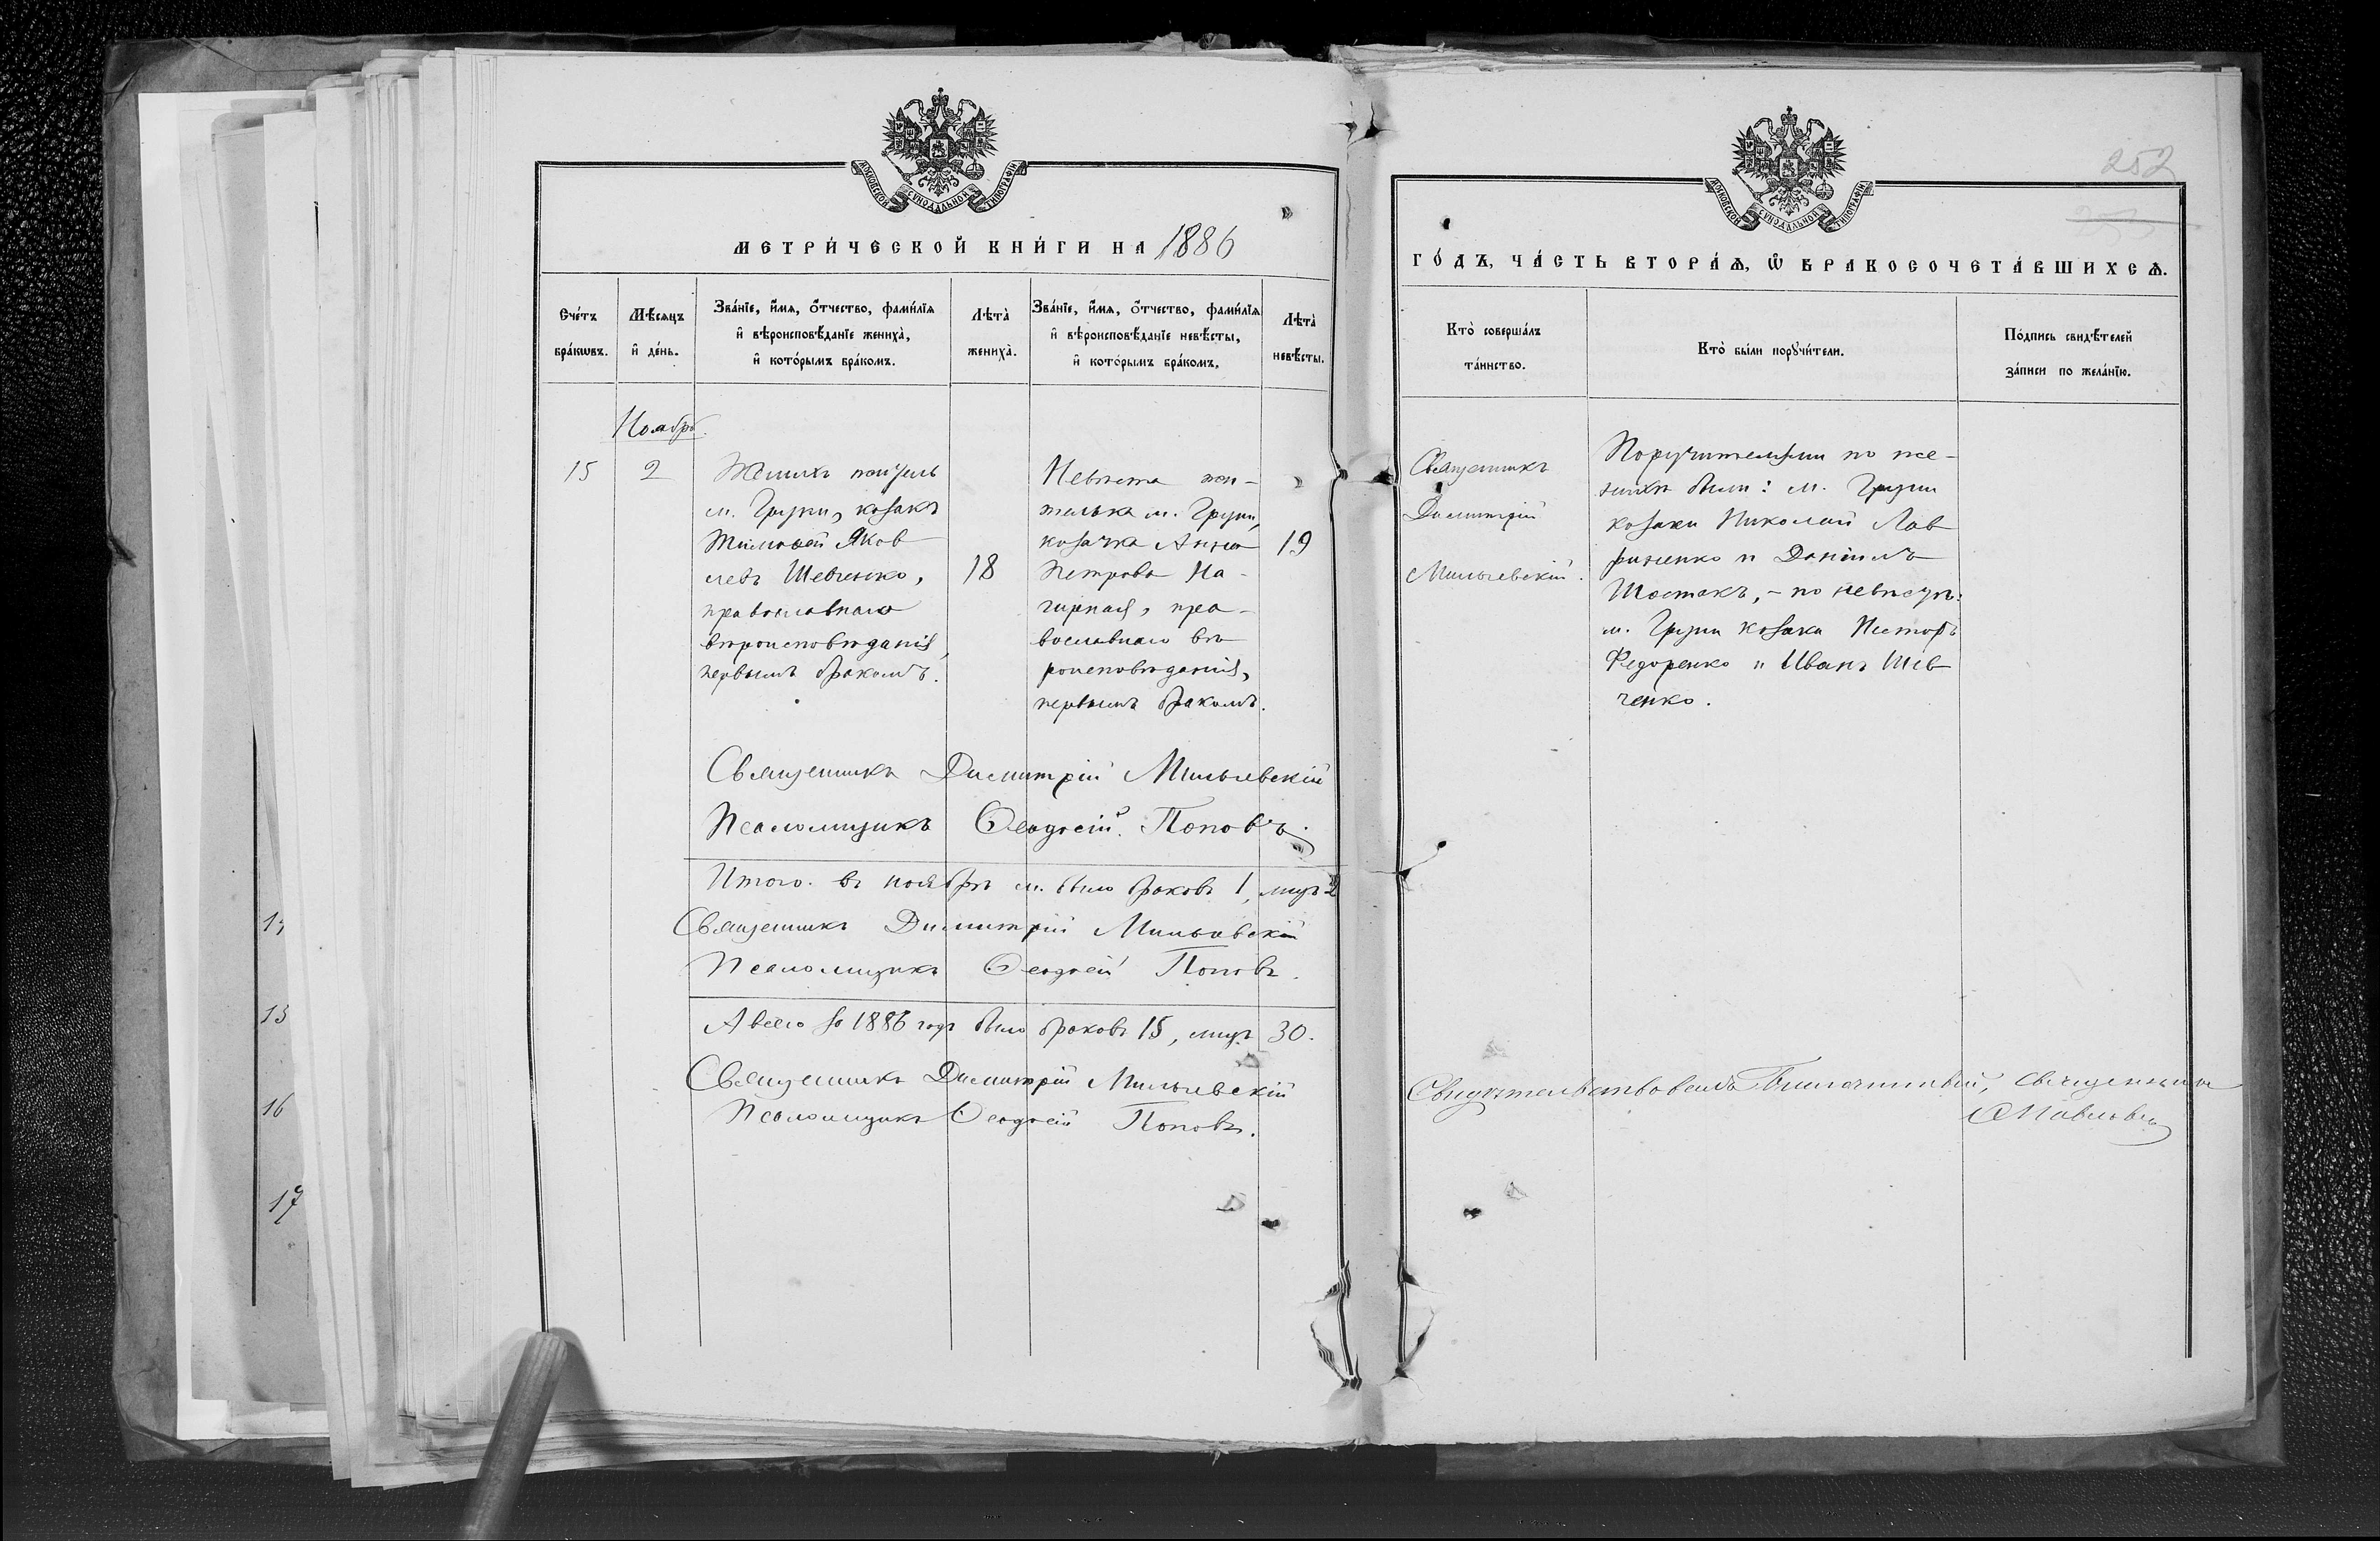 МОСКОВСКОЙ СѴНОДАЛЬНОЙ ТИПОГРАФІИ
МЕТРИ́ЧЕСКОЙ КНИ́ГИ НА 1886
Сче́тъ бра́кѡвъ.
Мѣ́сяцъ и҆ де́нь.
Зва́нїе, и҆́мя, ѻ҆́тчество, фами́лїя
и҆ вѣроисповѣ́данїе жениха̀,
и҆ кото́рымъ бра́комъ.
Лѣта̀ жениха̀.
Зва́нїе, и҆́мя, ѻ҆́тчество, фами́лїя
и҆ вѣроисповѣ́данїе невѣ́сты,
и҆ кото́рымъ бра́комъ.
Лѣта̀ невѣ́сты.
Ноябрь.
15
2
Женихъ житель
м. Груни, козакъ
Тимофей Яков
левъ Шевченко,
православнаго
вѣроисповѣданія,
первымъ бракомъ.
18
Невѣста жи-
телька м. Груни,
козачка Анна
Петрова На-
гирная, пра-
вославнаго вѣ
роисповѣданія,
первымъ бракомъ.
19
Священникъ Димитрій Мильчевскій
Псаломщикъ Ѳеодосій Поповъ.
Итого въ ноябрѣ м. было браковъ 1, лицъ 2
Священникъ Димитрій Мильчевскій
Псаломщикъ Ѳеодосій Поповъ.
А всего за 1886 годъ было браковъ 15, лицъ 30.
Священникъ Димитрій Мильчевскій
Псаломщикъ Ѳеодосій Поповъ.
15
16
17
МОСКОВСКОЙ СѴНОДАЛЬНОЙ ТИПОГРАФІИ
252
ГО́ДЪ, ЧА́СТЬ ВТОРА́Ѧ, Ѿ БРАКОСОЧЕТА́ВШИХСѦ.
Кто̀ соверша́лъ
та́инство.
Кто̀ бы́ли порꙋчи́тели.
По́дпись свидѣ́телей
за́писи по жела́нїю.
Священникъ
Димитрій
Мильчевскій.
Поручителями по же-
нихѣ были: м. Груни
козаки Николай Лав
риненко и Даніилъ
Шостакъ, - по невѣстѣ:
м. Груни козаки Несторъ
Федоренко и Иванъ Шев
ченко.
Свидѣтельствовалъ Благочинный, священникъ
Павловъ